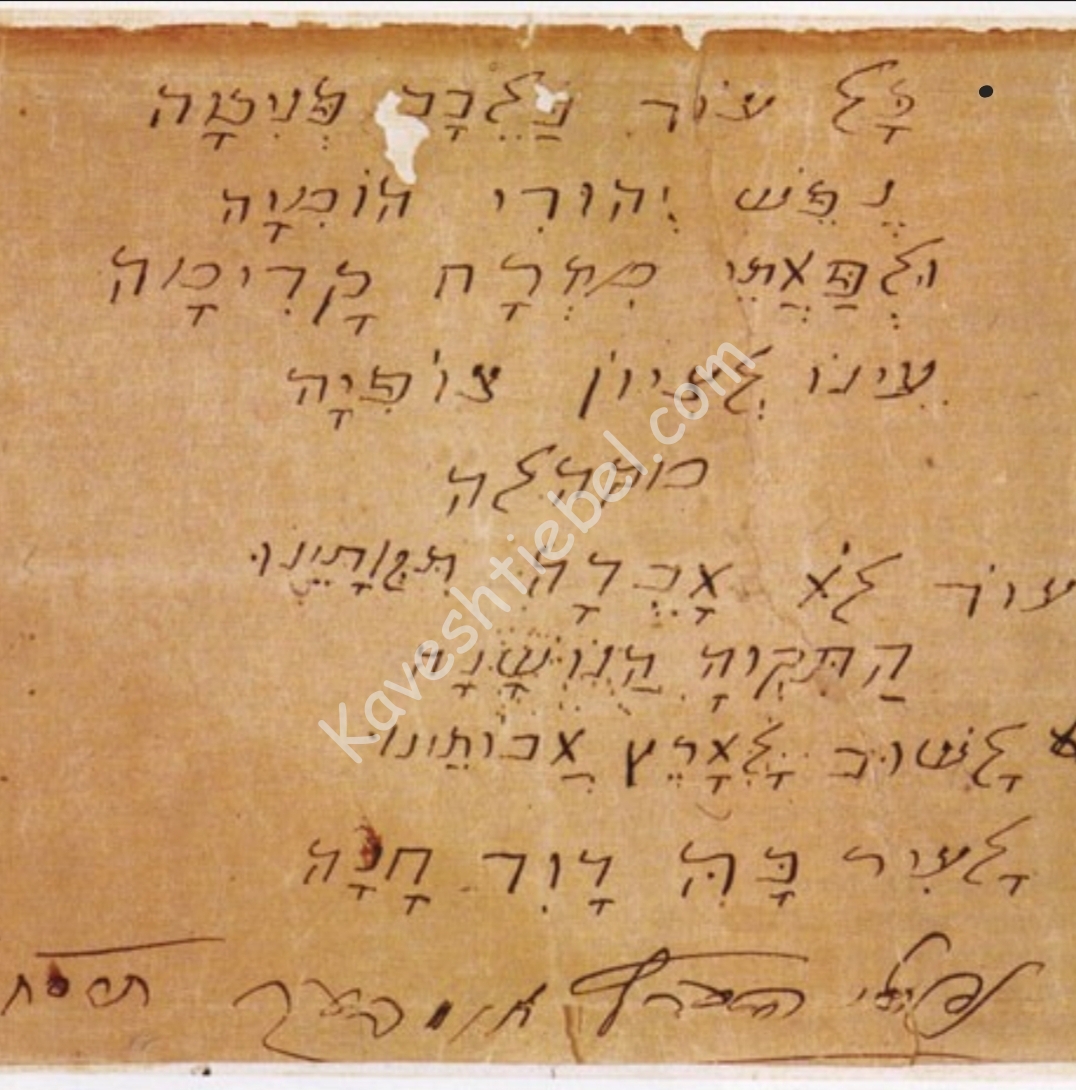 כָּל עוֹד בַּלֵּבָב פְּנִימָה
נֶפֶשׁ יְהוּדִי הוֹמִיָה
וּלְפַאֲתֵי מִזְרָח קָדִימָה
עֵינוֹ לְצִיוֹן צוֹפִיָה
מקהלה
עוֹד לֹא אָבְדָה תִּקְוָתֵינוּ
הַתִּקְוָה הַנוֹשָׁנָה
לָשׁוּב לְאָרֶץ אֲבוֹתֵינוּ
לָעִיר בָּהּ דָוִד חָנָה
נפתלי הערץ אימבער תרסח
Kaveshtiebel.com